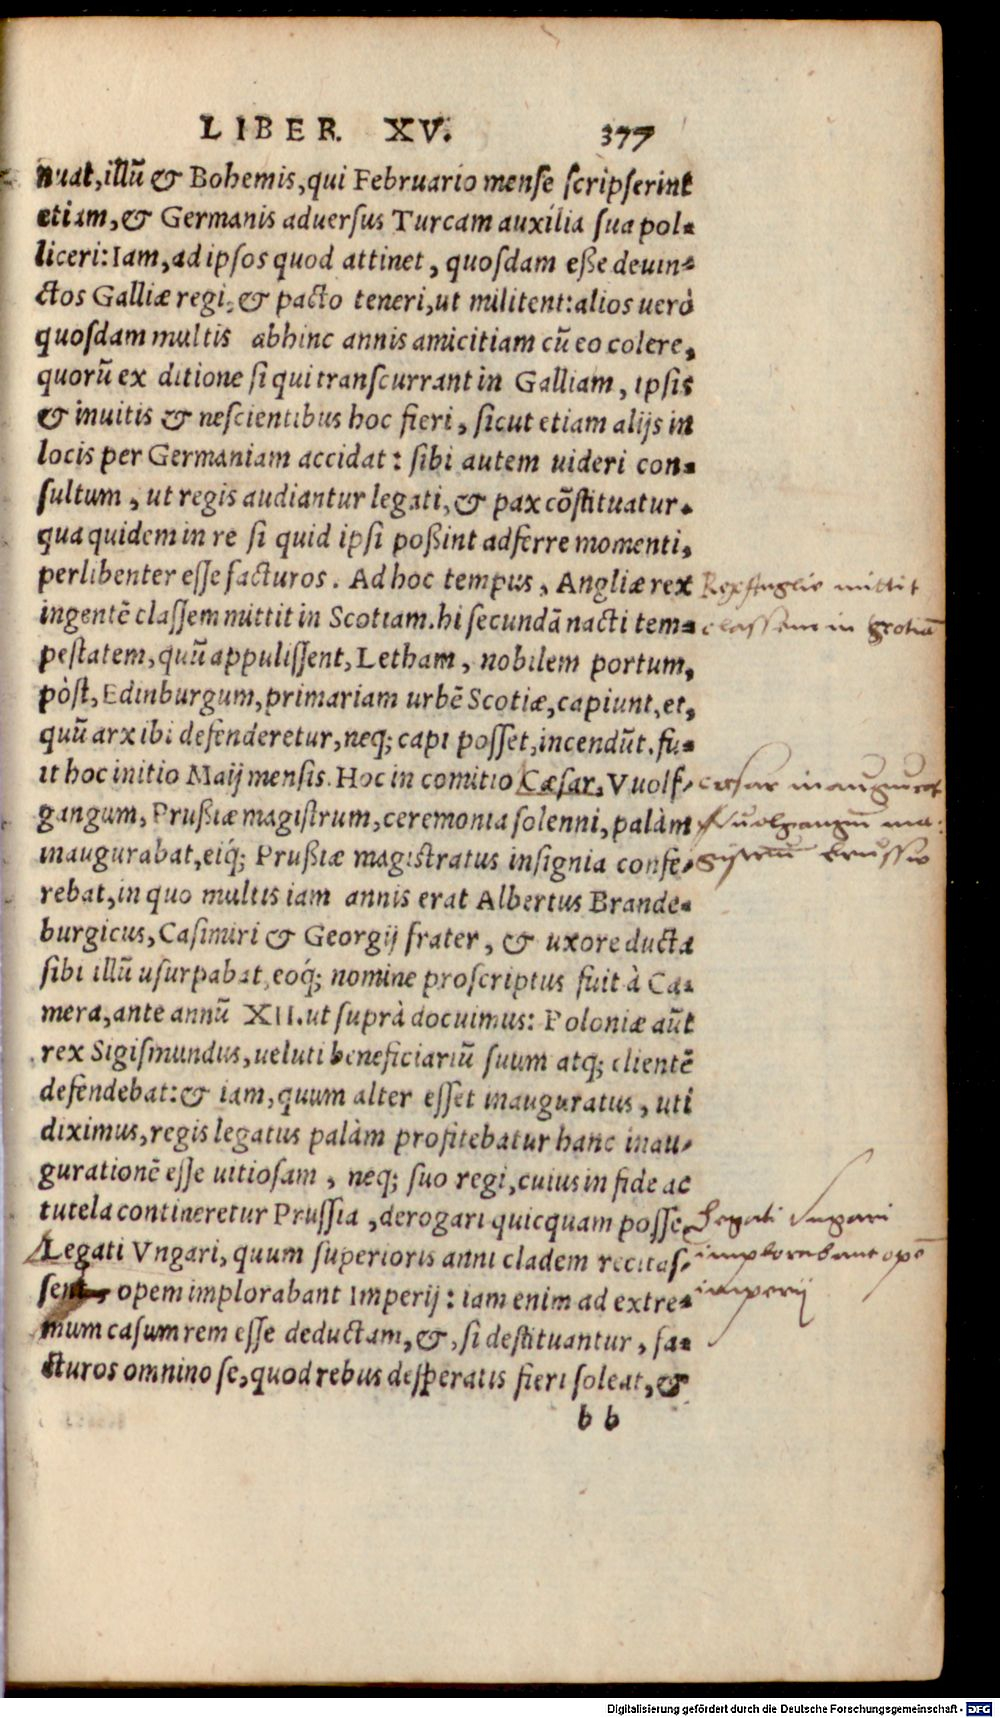 LIBER. XV. 377
nuat, illũ & Bohemis, qui Februario mense scripserint
etiam, & Germanis aduersus Turcam auxilia sua pol-
liceri: Iam, ad ipsos quod attinet, quosdam eße deuin-
ctos Galliæ regi, & pacto teneri, ut militent: alios uerò
quosdam multis abhinc annis amicitiam cũ eo colere,
quorũ ex ditione si qui transcurrant in Galliam, ipsis
& inuitis & nescientibus hoc fieri, sicut etiam alijs in
locis per Germaniam accidat: sibi autem uideri con-
sultum, ut regis audiantur legati, & pax cõstituatur.
qua quidem in re si quid ipsi poßint adferre momenti,
perlibenter esse facturos. Ad hoc tempus, Angliæ rex
Rex Angliæ mittit
ingentẽ classem mittit in Scotiam. hi secundã nacti tem-
classem in Scotiã
pestatem, quũ appulissent, Letham, nobilem portum,
pòst, Edinburgum, primariam urbẽ Scotiæ, capiunt, et,
quũ arx ibi defenderetur, neq; capi posset, incendũt. fu-
it hoc initio Maij mensis. Hoc in comitio Cæsar, Vuolf-
cæsar inaugurat
gangum, Prußiæ magistrum, ceremonia solenni, palàm
Vuolfgangũ ma-
inaugurabat, eiq́; Prußiæ magistratus insignia confe-
gistrũ prussiæ
rebat, in quo multis iam annis erat Albertus Brande-
burgicus, Casimiri & Georgij frater, & uxore ducta
sibi illũ usurpabat, eoq́; nomine proscriptus fuit à Ca-
mera, ante annũ XII. ut suprà docuimus: Poloniæ aũt
rex Sigismundus, ueluti beneficiariũ suum atq; clientẽ
defendebat: & iam, quum alter esset inauguratus, uti
diximus, regis legatus palàm profitebatur hanc inau-
gurationẽ esse uitiosam, neq; suo regi, cuius in fide ac
tutela contineretur Prussia, derogari quicquam posse.
Legati Vngari
Legati Vngari, quum superioris anni cladem recitas-
implorabant opẽ
sent, opem implorabant Imperij: iam enim ad extre-
imperij
mum casum rem esse deductam, &, si destituantur, fa-
cturos omnino se, quod rebus desperatis fieri soleat, &
b b
Digitalisierung gefördert durch die Deutsche Forschungsgemeinschaft - DFG